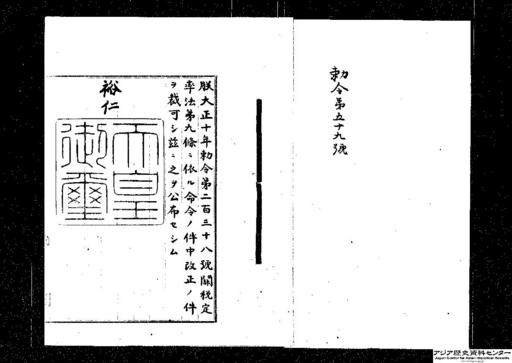 勅令第五十九號
朕大正十年勅令第二百三十八號關税定
率法第九條ニ依ル命令ノ件中改正ノ件
ヲ裁可シ茲ニ之ヲ公布セシム
裕仁
天皇
御璽
アジア歴史資料センター
Japan Center for Asian Historical Records